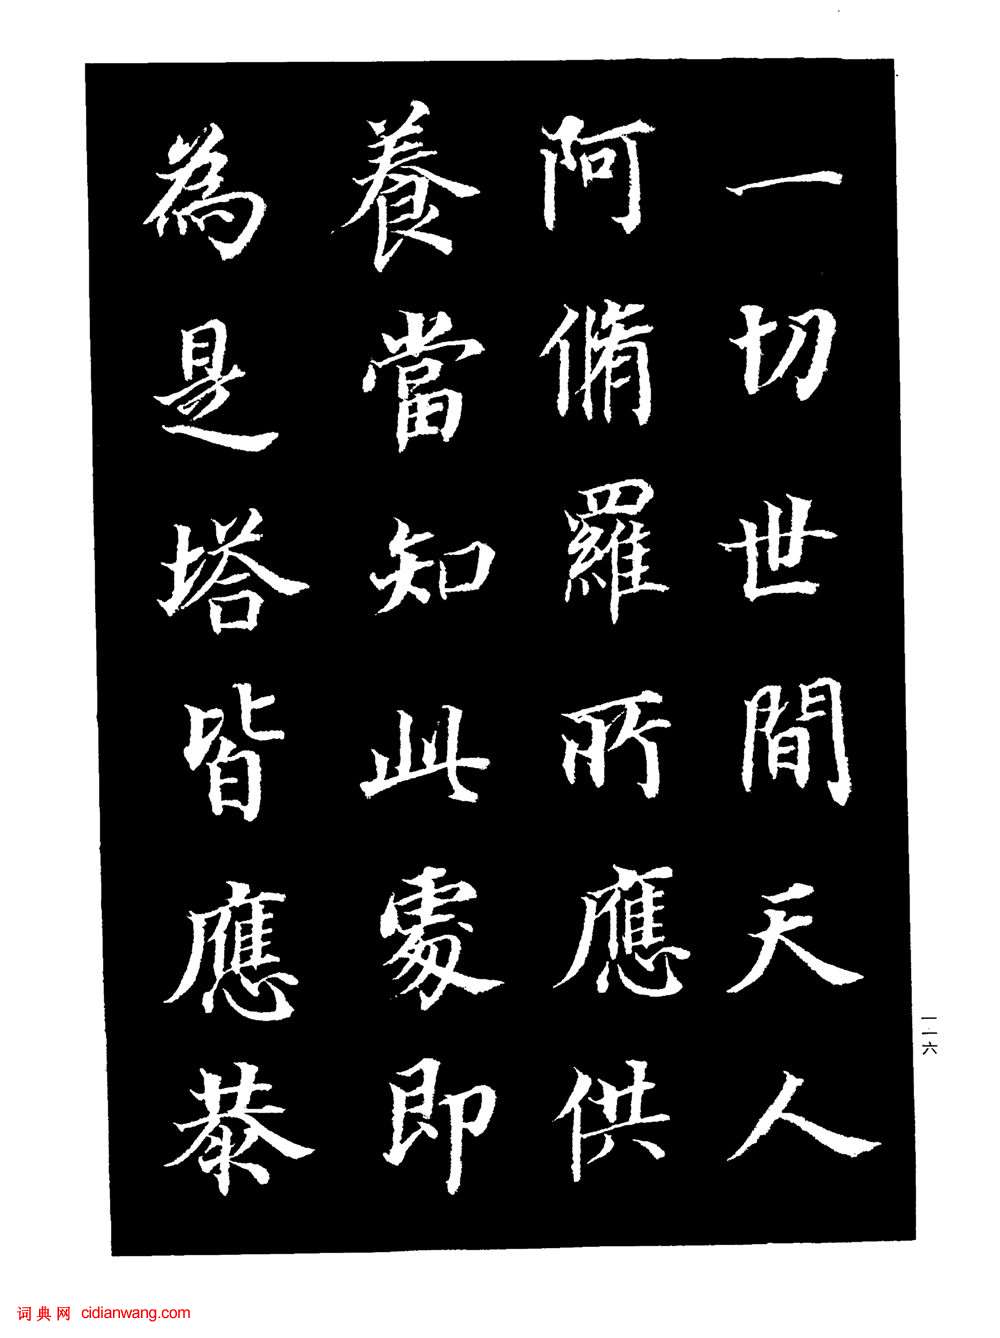 一切世間天人
阿脩羅所應供
養當知此處即
為是塔皆應恭
一一六
词典网 cidianwang.com